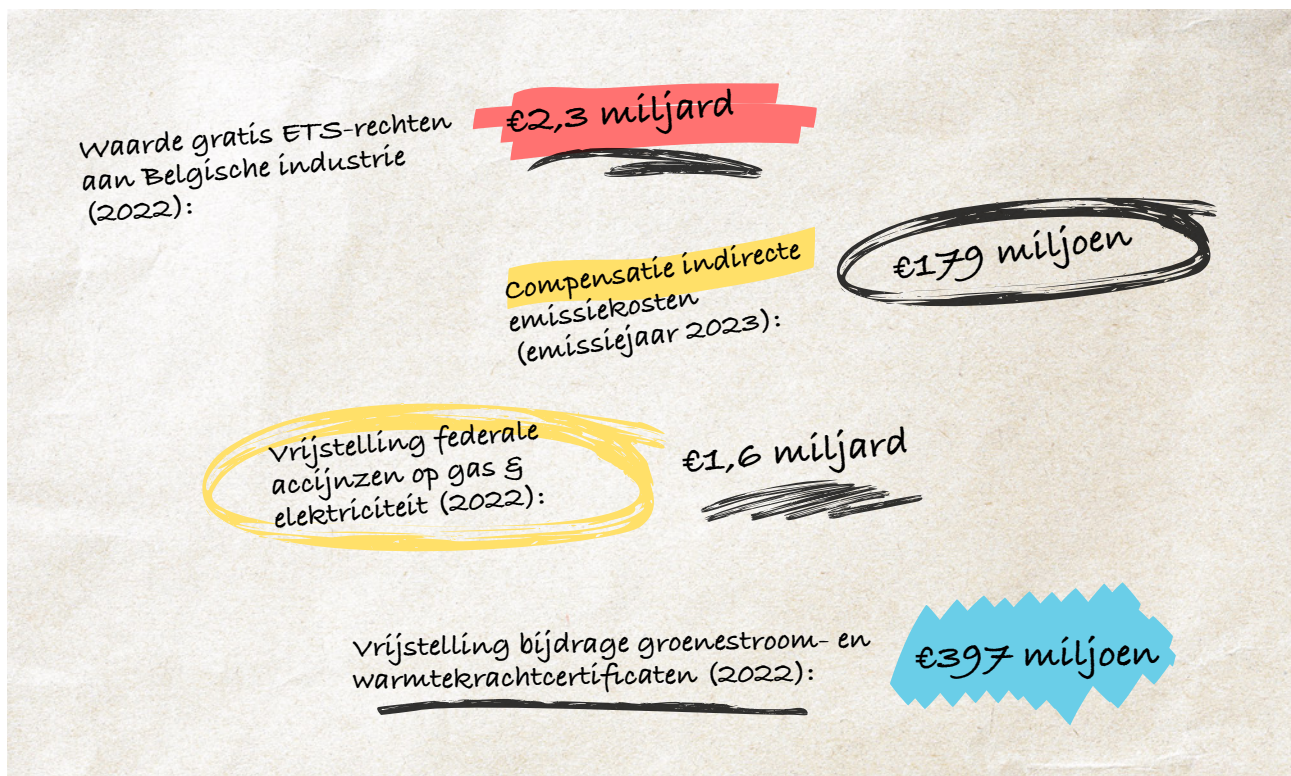 Waarde gratis ETS-rechten
aan Belgische industrie
(2022):
€2,3 miljard
Compensatie indirecte
emissiekosten
(emissiejaar 2023):
€179 miljoen
Vrijstelling federale
accijnzen op gas &
elektriciteit (2022):
€1,6 miljard
Vrijstelling bijdrage groenestroom- en
warmtekrachtcertificaten (2022):
€397 miljoen